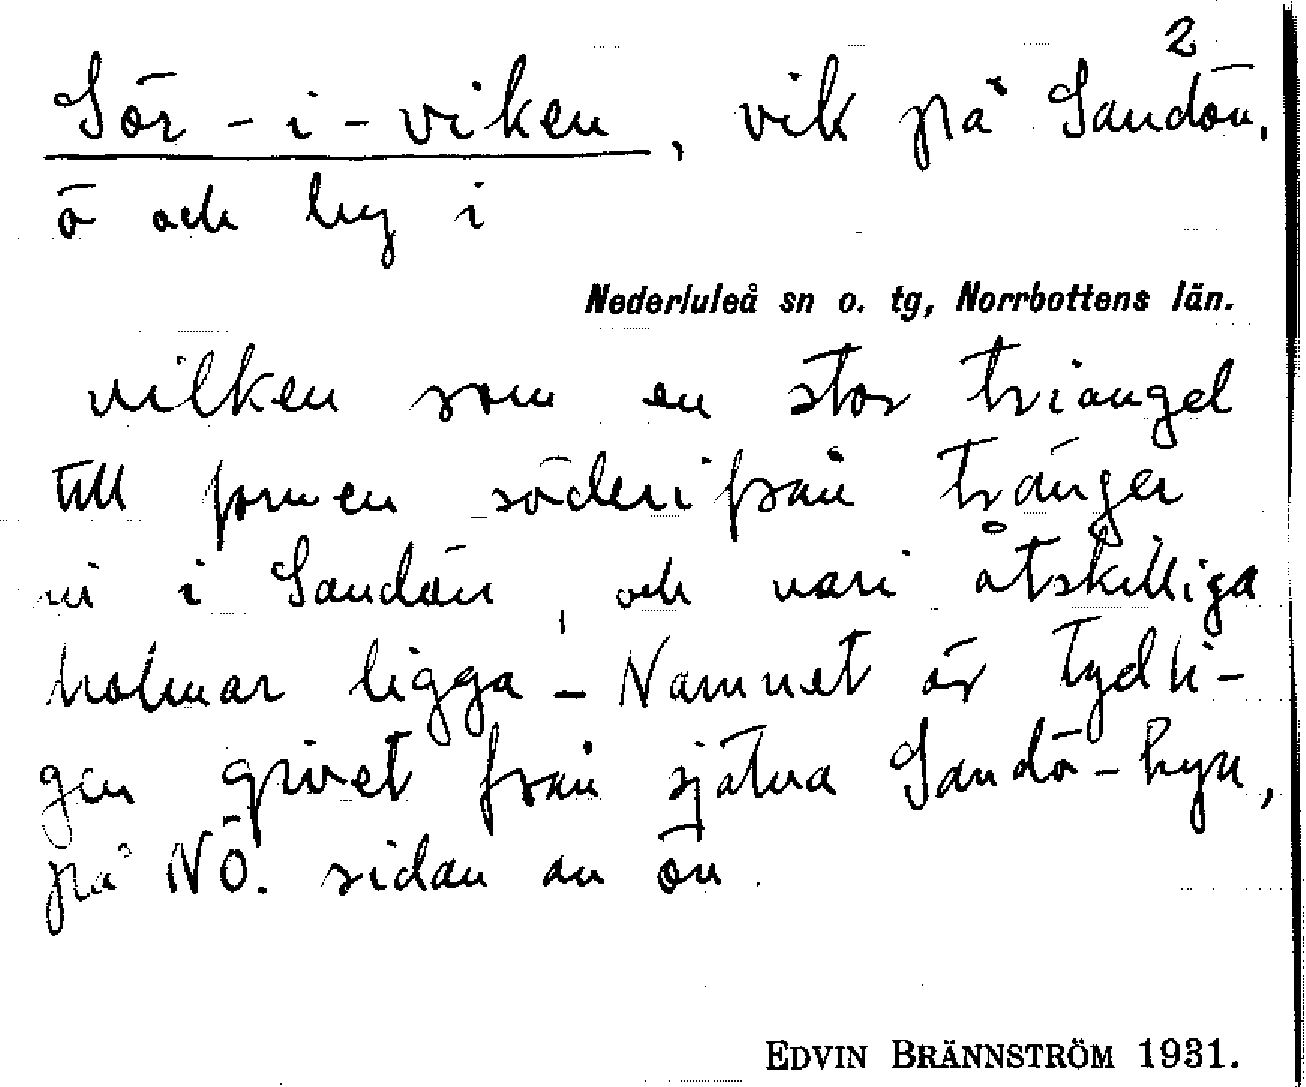 2
Sör-i-viken, vik på Sandön,
ö och by i
Nederluleå sn o. tg, Norrbottens län.
vilken som en stor triangel
till formen söderifrån tränger
in i Sandön, och vari åtskilliga
holmar ligga - Namnet är tydli-
gen givet från själva Sandö-byn,
på NÖ. sidan av ön.
EDVIN BRÄNNSTRÖM 1931.